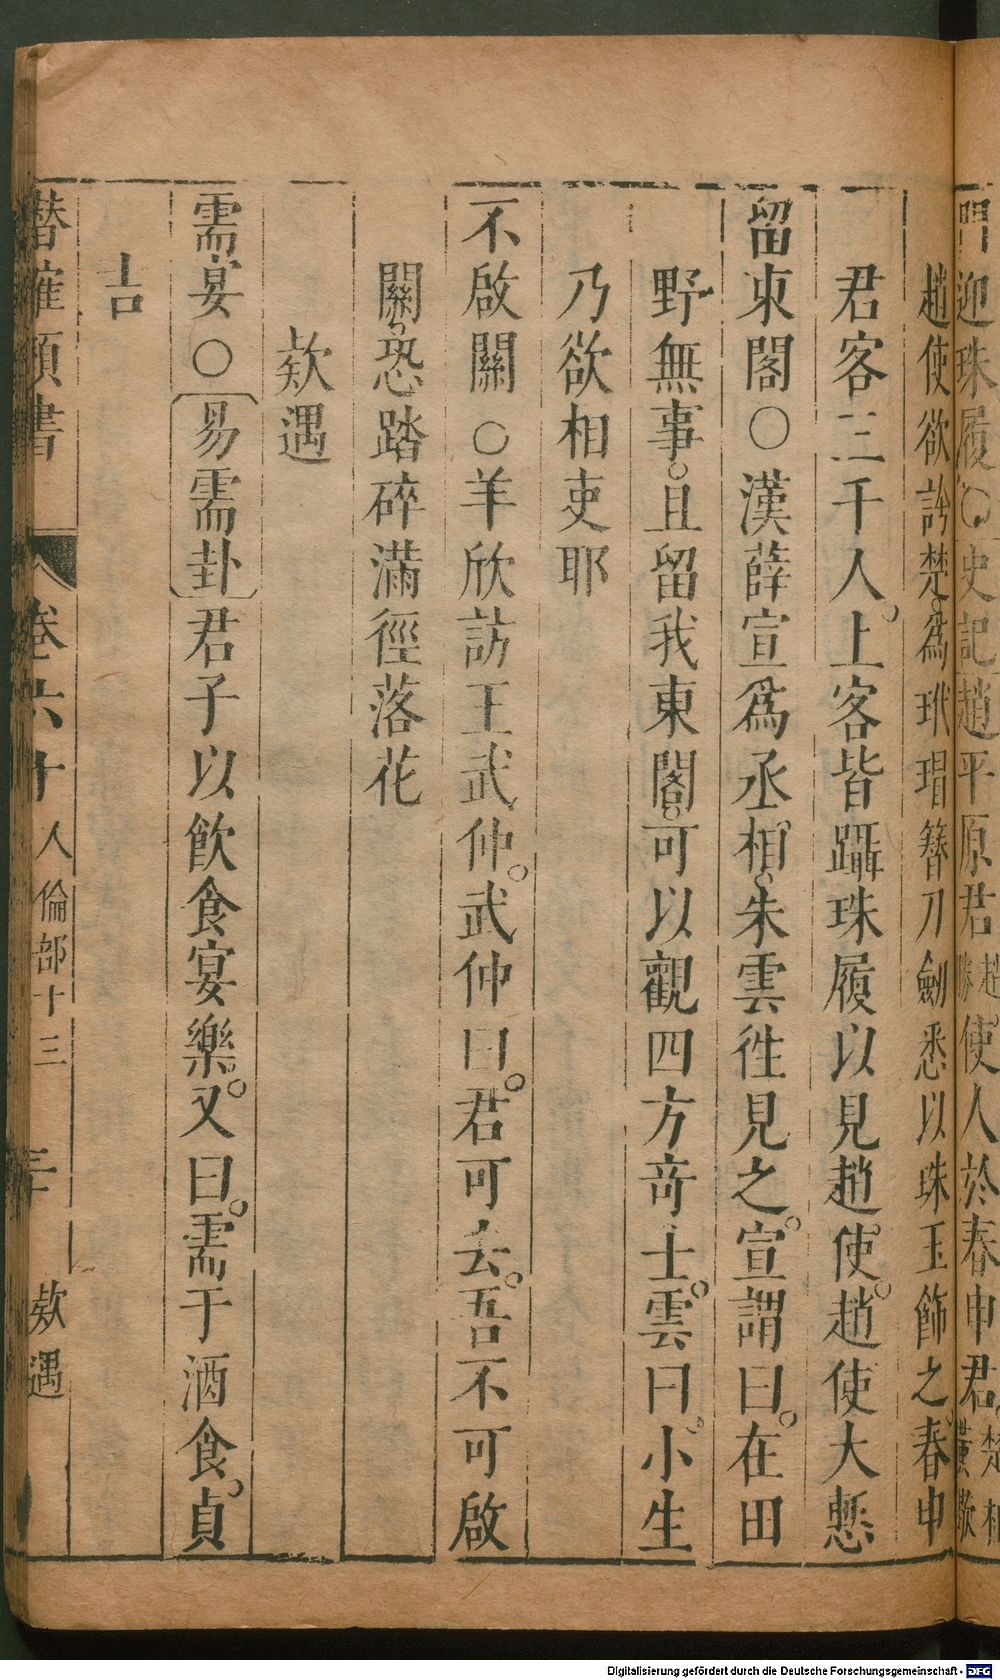 門迎珠履○史記趙平原君趙勝使人於春申君楚相黃歇
趙使欲誇楚爲玳瑁簪刀劍悉以珠玉飾之春申
君客三千人上客皆躡珠履以見趙使趙使大慙
留東閣○漢薛宣爲丞相朱雲徃見之宣謂曰在田
野無事且留我東閣可以觀四方奇士雲曰小生
乃欲相吏耶
不啟關○羊欣訪王武仲武仲曰君可去吾不可啟
關恐踏碎滿徑落花
欵遇
需宴○易需卦君子以飲食宴樂又曰需于酒食貞
吉
潛確類書 卷六十 人倫部十三 三十 欵遇
Digitalisierung gefördert durch die Deutsche Forschungsgemeinschaft - DFG